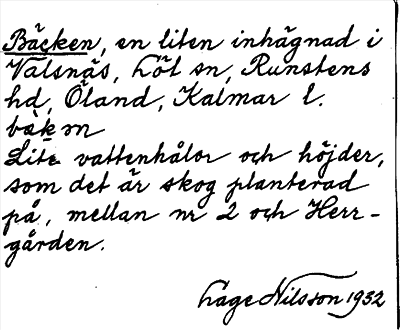 Bäcken, en liten inhägnad i
Valsnäs, Löt sn, Runstens
hd, Öland, Kalmar l.
bäkən
Lite vattenhålor och höjder,
som det är skog planterad
på, mellan nr 2 och Herr-
gården.
Låge Nilsson 1932